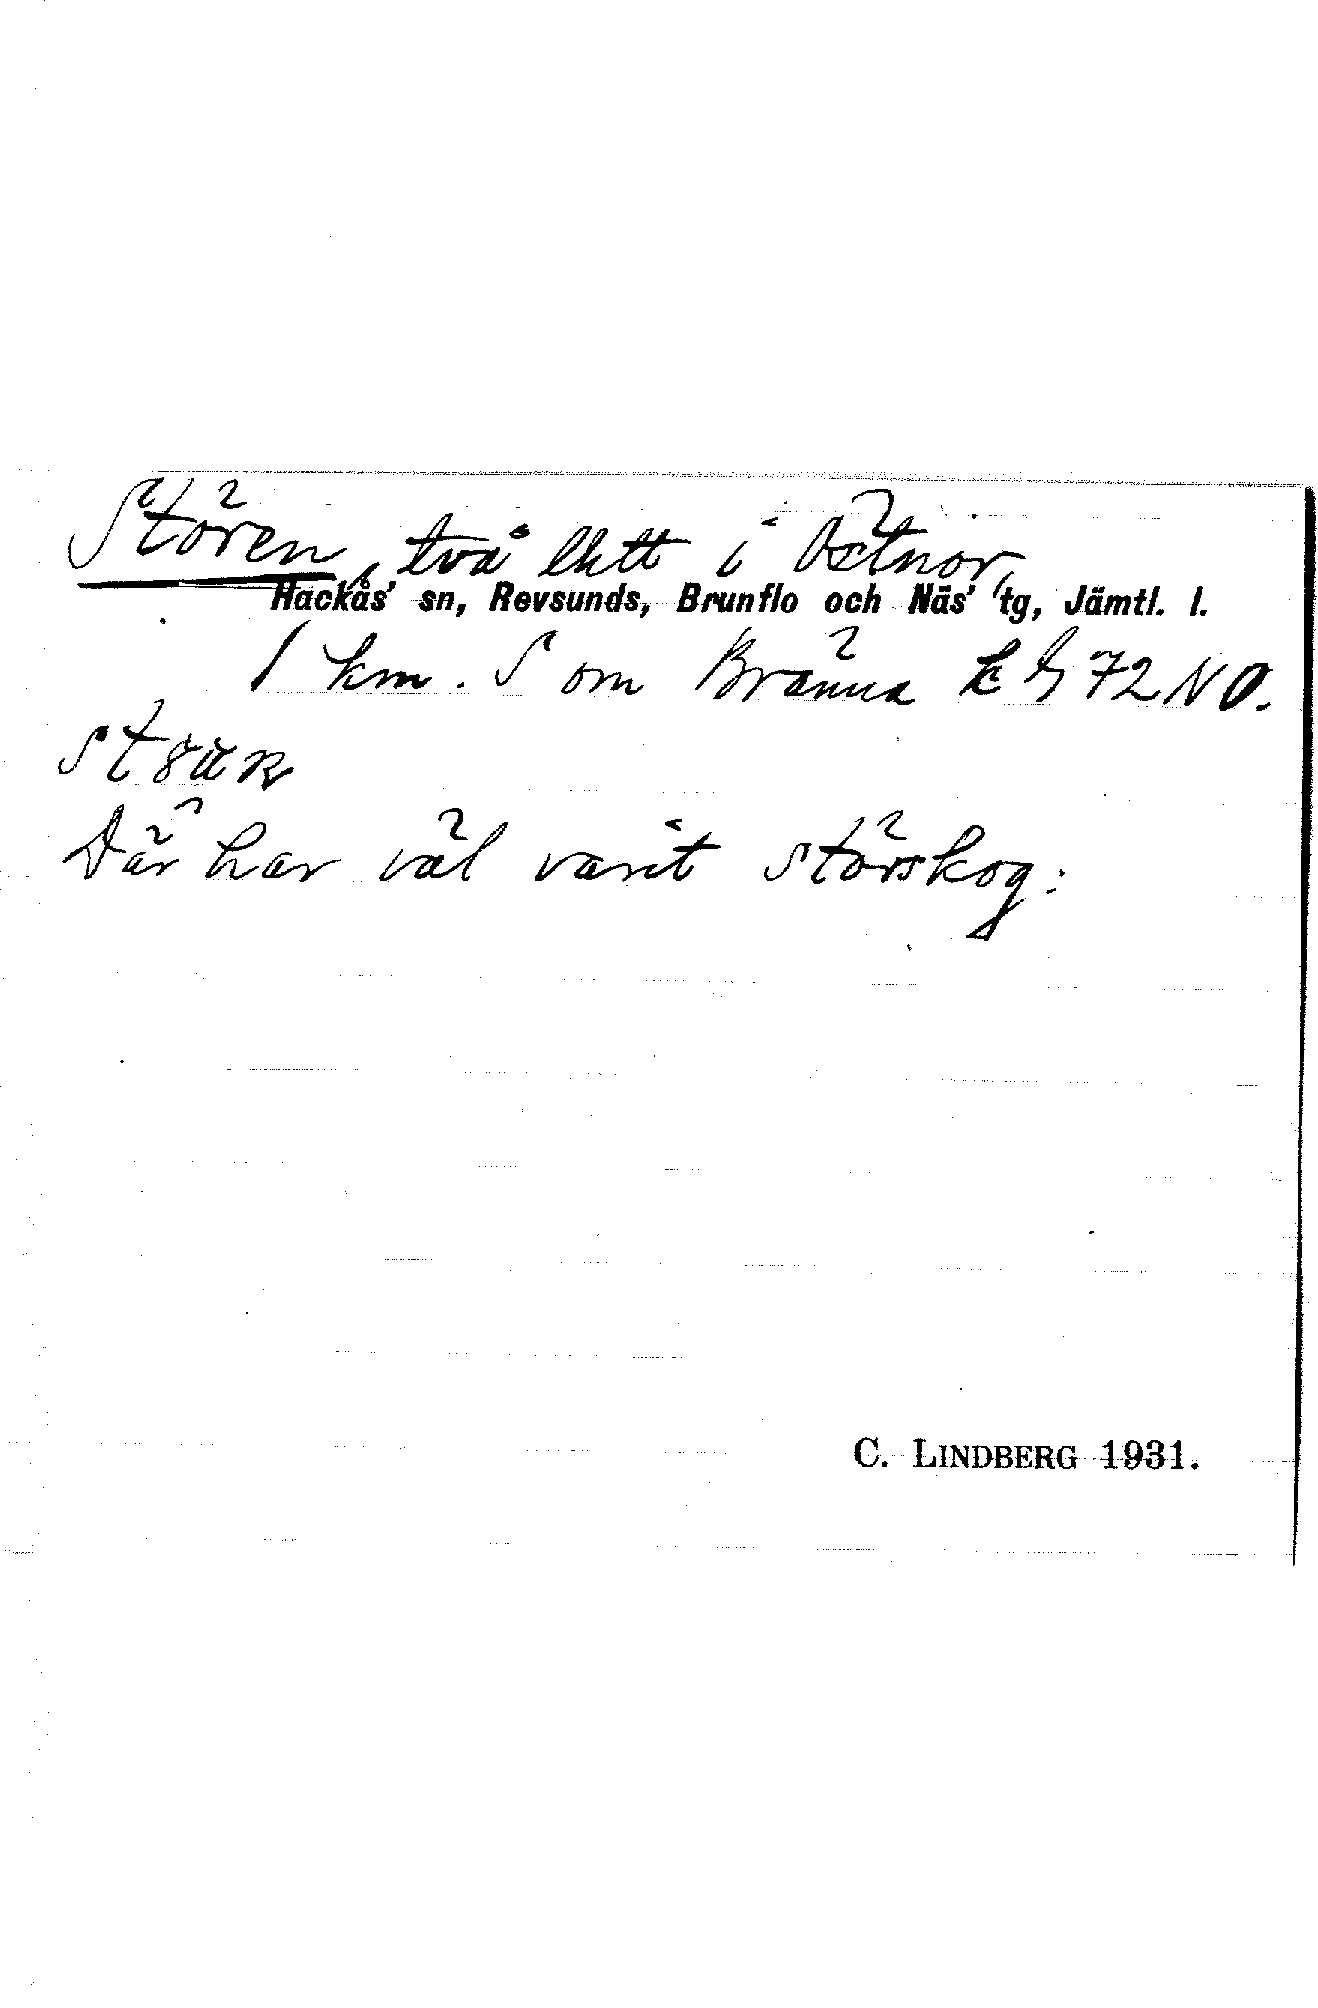 Stören, två lhtt i Östnor,
Hackås' sn, Revsunds, Brunflo och Näs' tg, Jämtl. l.
1 km. S om Bränna k bl 72 NO.
Där har väl varit störskog.
C. LINDBERG 1931.